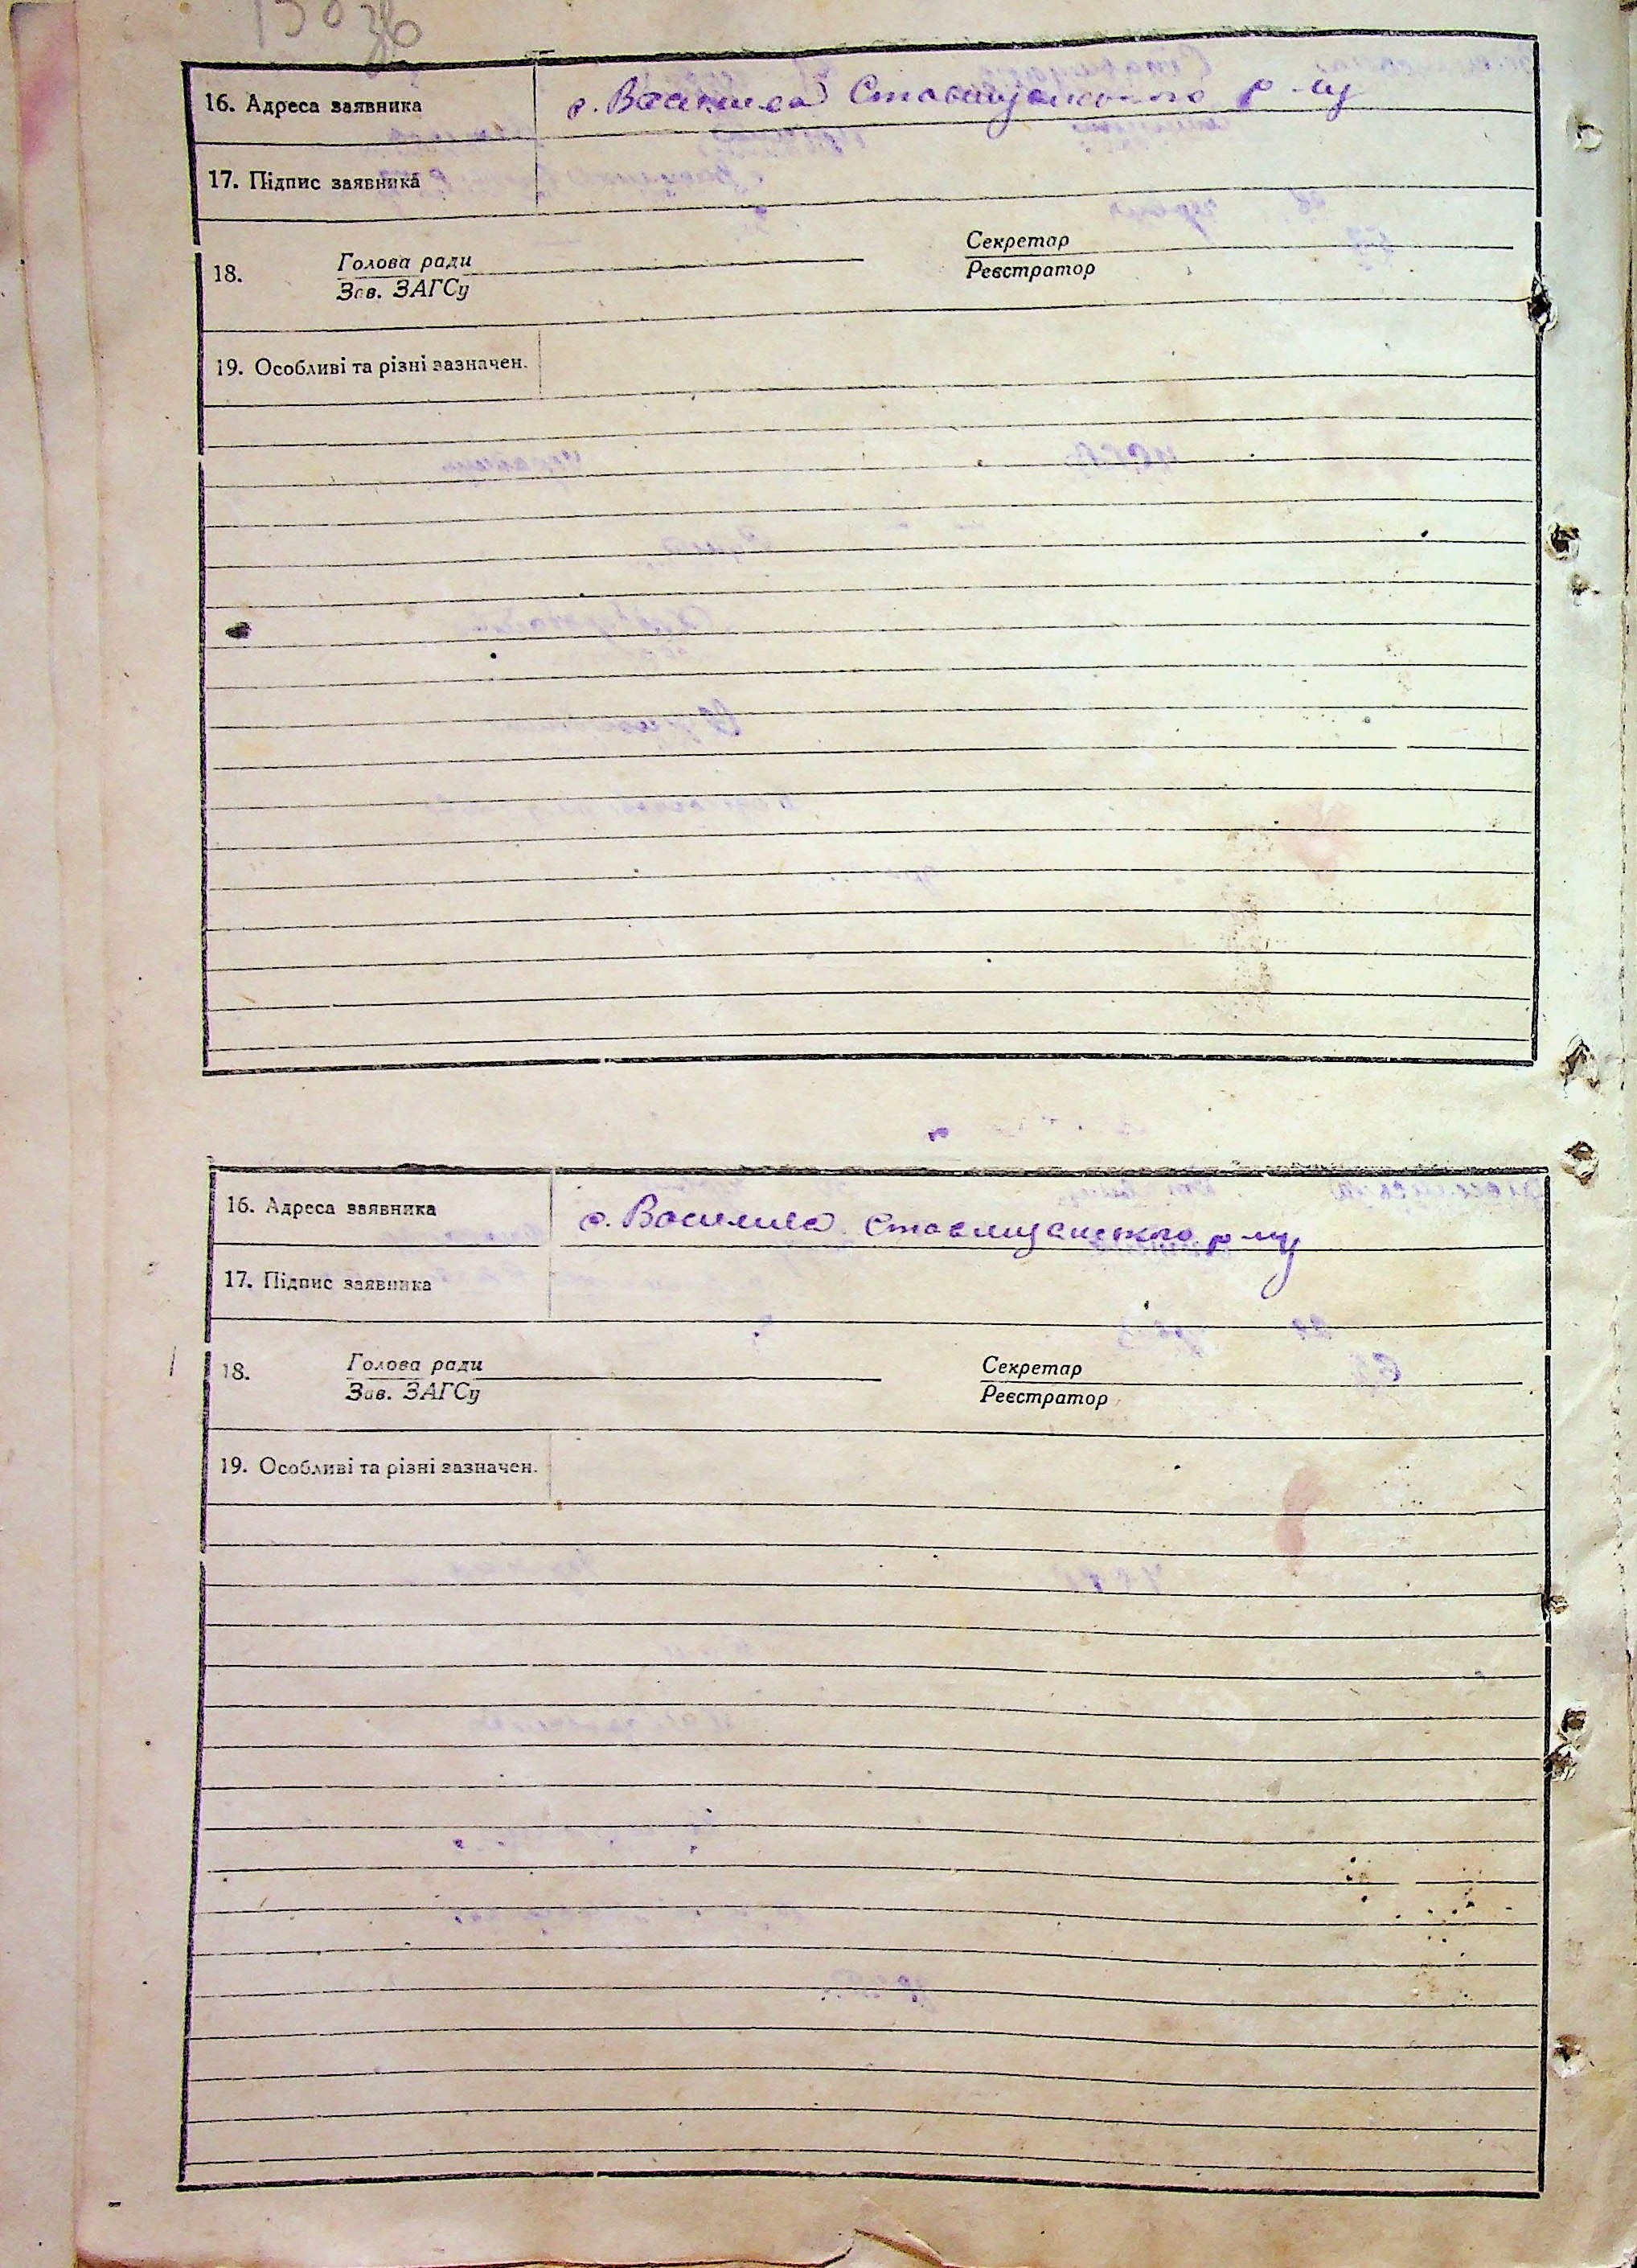 16. Адреса заявника с. Василиха Ставищанського р-ну
17. Підпис заявника
18. Голова ради Секретар
Зав. ЗАГСу Реєстратор
19. Особливі та різні зазначен.
16. Адреса заявника с. Василиха Ставищанского р-ну
17. Підпис заявника
18. Голова ради Секретар
Зав. ЗАГСу Реєстратор
19. Особливі та різні зазначен.